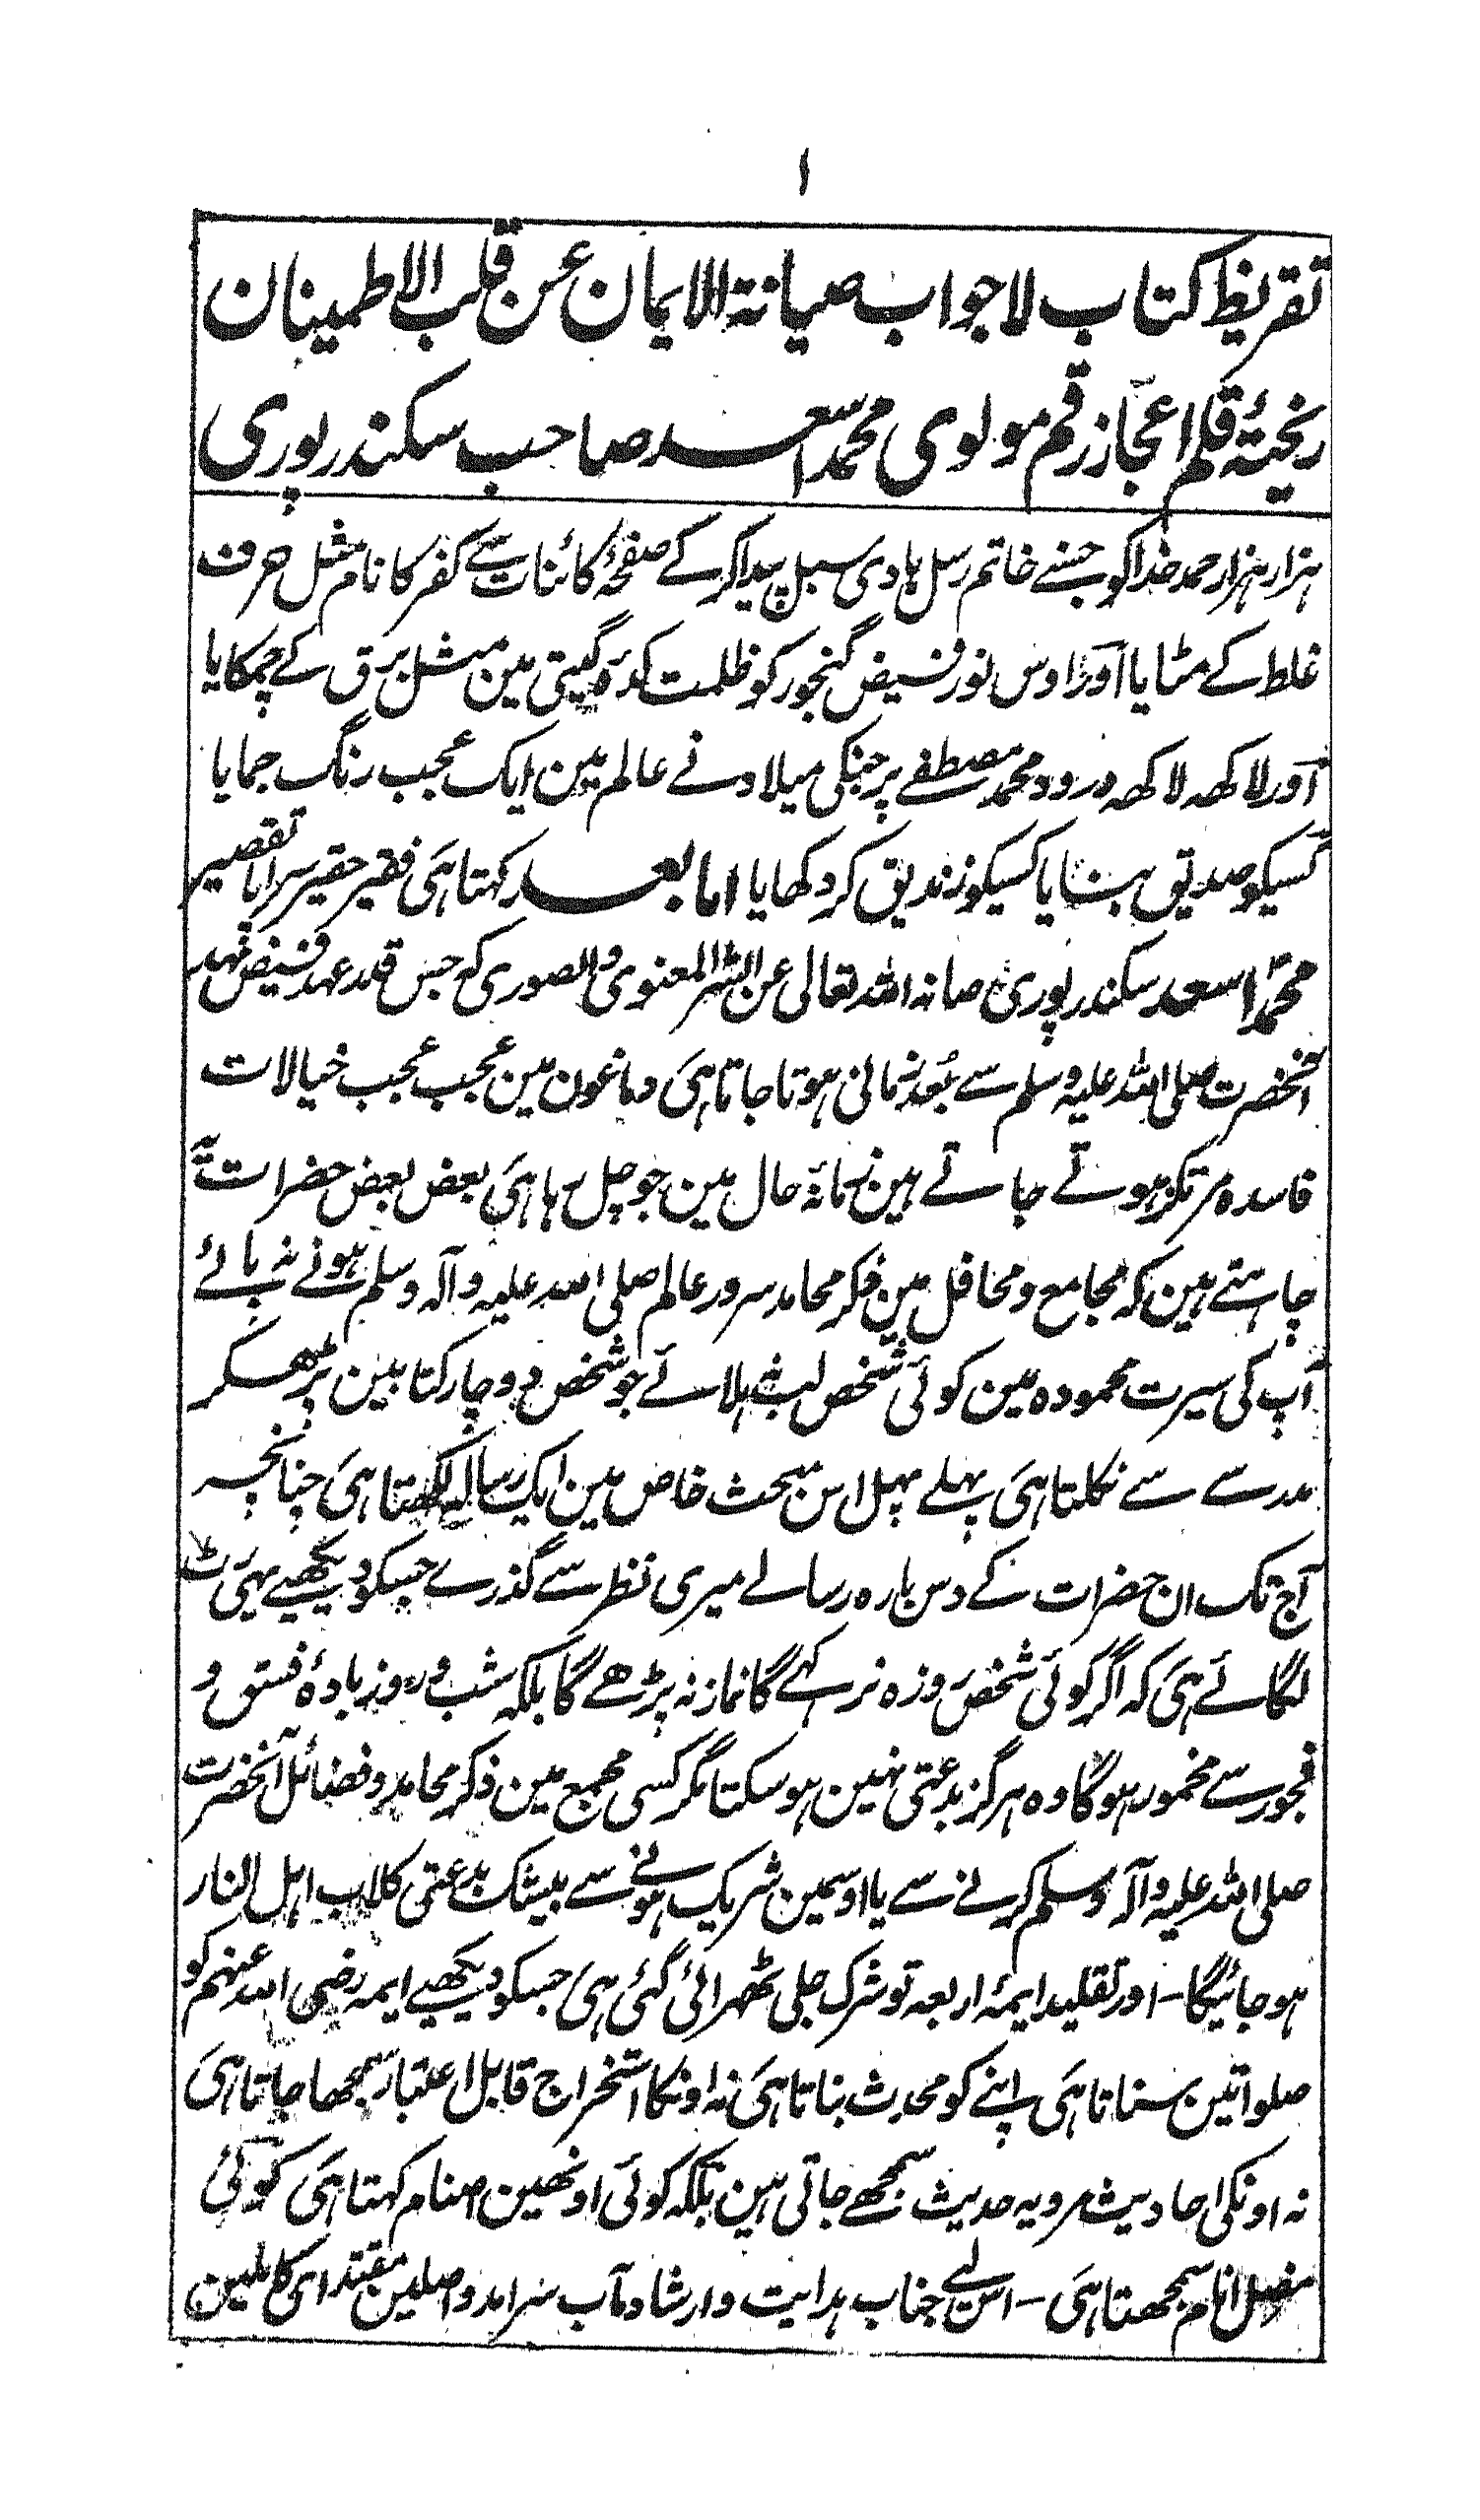 ۱
تقریظ کتاب لاجواب صیانۃ الایمان عن قلب الاطمینان
ریختۂ قلم اعجاز رقم مولوی محمد اسعد صاحب سکندرپوری
ہزار ہزار حمد خدا کو جسنے خاتم رسل ہادی سبل پیدا کر کے صفحۂ کائنات سے کفر کا نام مثل حرف
غلط کے مٹایا اور اوس نور فیض گنجور کو ظلمت کدۂ گیتی مین مثل برق کے چمکایا
اور لاکھہ لاکھہ درود محمد مصطفے پر جنکی میلاد نے عالم مین ایک عجب رنگ جمایا
کسیکو صدیق بنایا کسیکو زندیق کر دکھایا اما بعد کہتا ہی فقیر حقیر سراپا تقصیر
محمد اسعد سکندرپوری صانہ اللہ تعالی عن الشر المعنوی والصوری کہ جس قدر عہد فیض مہد
آنحضرت صلی اللہ علیہ وسلم سے بُعد زمانی ہوتا جاتا ہی دماغون مین عجب عجب خیالات
فاسدہ مرتکز ہوتے جاتے ہین زمانۂ حال مین جو چل رہا ہی بعض بعض حضرات یہ
چاہتے ہین کہ مجامع و محافل مین ذکر محامد سرور عالم صلی اللہ علیہ وآلہ وسلم ہونے نہ پائے
آپ کی سیرت محمودہ مین کوئی شخص لب نہ ہلائے جو شخص دو چار کتابین پڑھکر
مدرسے سے نکلتا ہی پہلے پہل اس مبحث خاص مین ایک رسالہ لکھتا ہی چنانچہ
آج تک ان حضرات کے دس بارہ رسالے میری نظر سے گذرے جسکو دیکھیے یہی رٹ
لگائے ہی کہ اگر کوئی شخص روزہ نرکہے گا نماز نہ پڑھے گا بلکہ شب و روز بادۂ فسق و
فجور سے مخمور ہوگا وہ ہرگز بدعتی نہین ہو سکتا مگر کسی مجمع مین ذکر محامد و فضائل آنحضرت
صلی اللہ علیہ وآلہ وسلم کرنے سے یا اوسمین شریک ہونے سے بیشک بدعتی کلاب اہل النار
ہو جائیگا - اور تقلید ایمۂ اربعہ تو شرک جلی ٹھرائی گئی ہی جسکو دیکھیے ایمہ رضی اللہ عنہم کو
صلواتین سناتا ہی اپنے کو محدث بناتا ہی نہ اونکا استخراج قابل اعتبار سمجھا جاتا ہی
نہ اونکی احادیث مرویہ حدیث سمجھے جاتی ہین بلکہ کوئی اونھین اصنام کہتا ہی کوئی
مضل انام سمجھتا ہی - اس لیے جناب ہدایت و ارشاد مآب سرآمد واصلین مقتدای کاملین